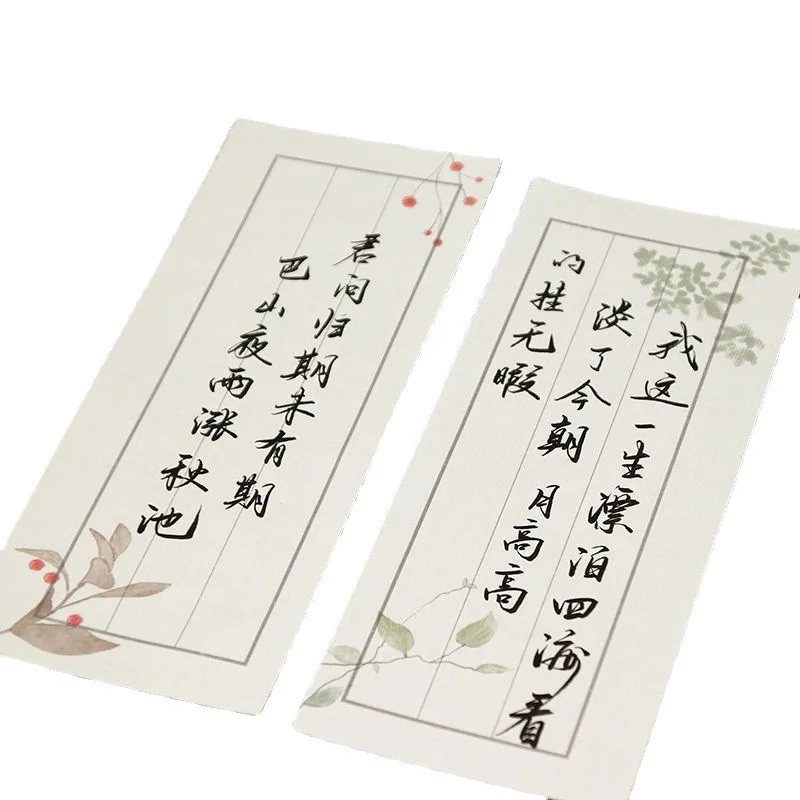 君问归期未有期
巴山夜雨涨秋池
我这一生漂泊四海看
淡了今朝 月高高
的挂无暇